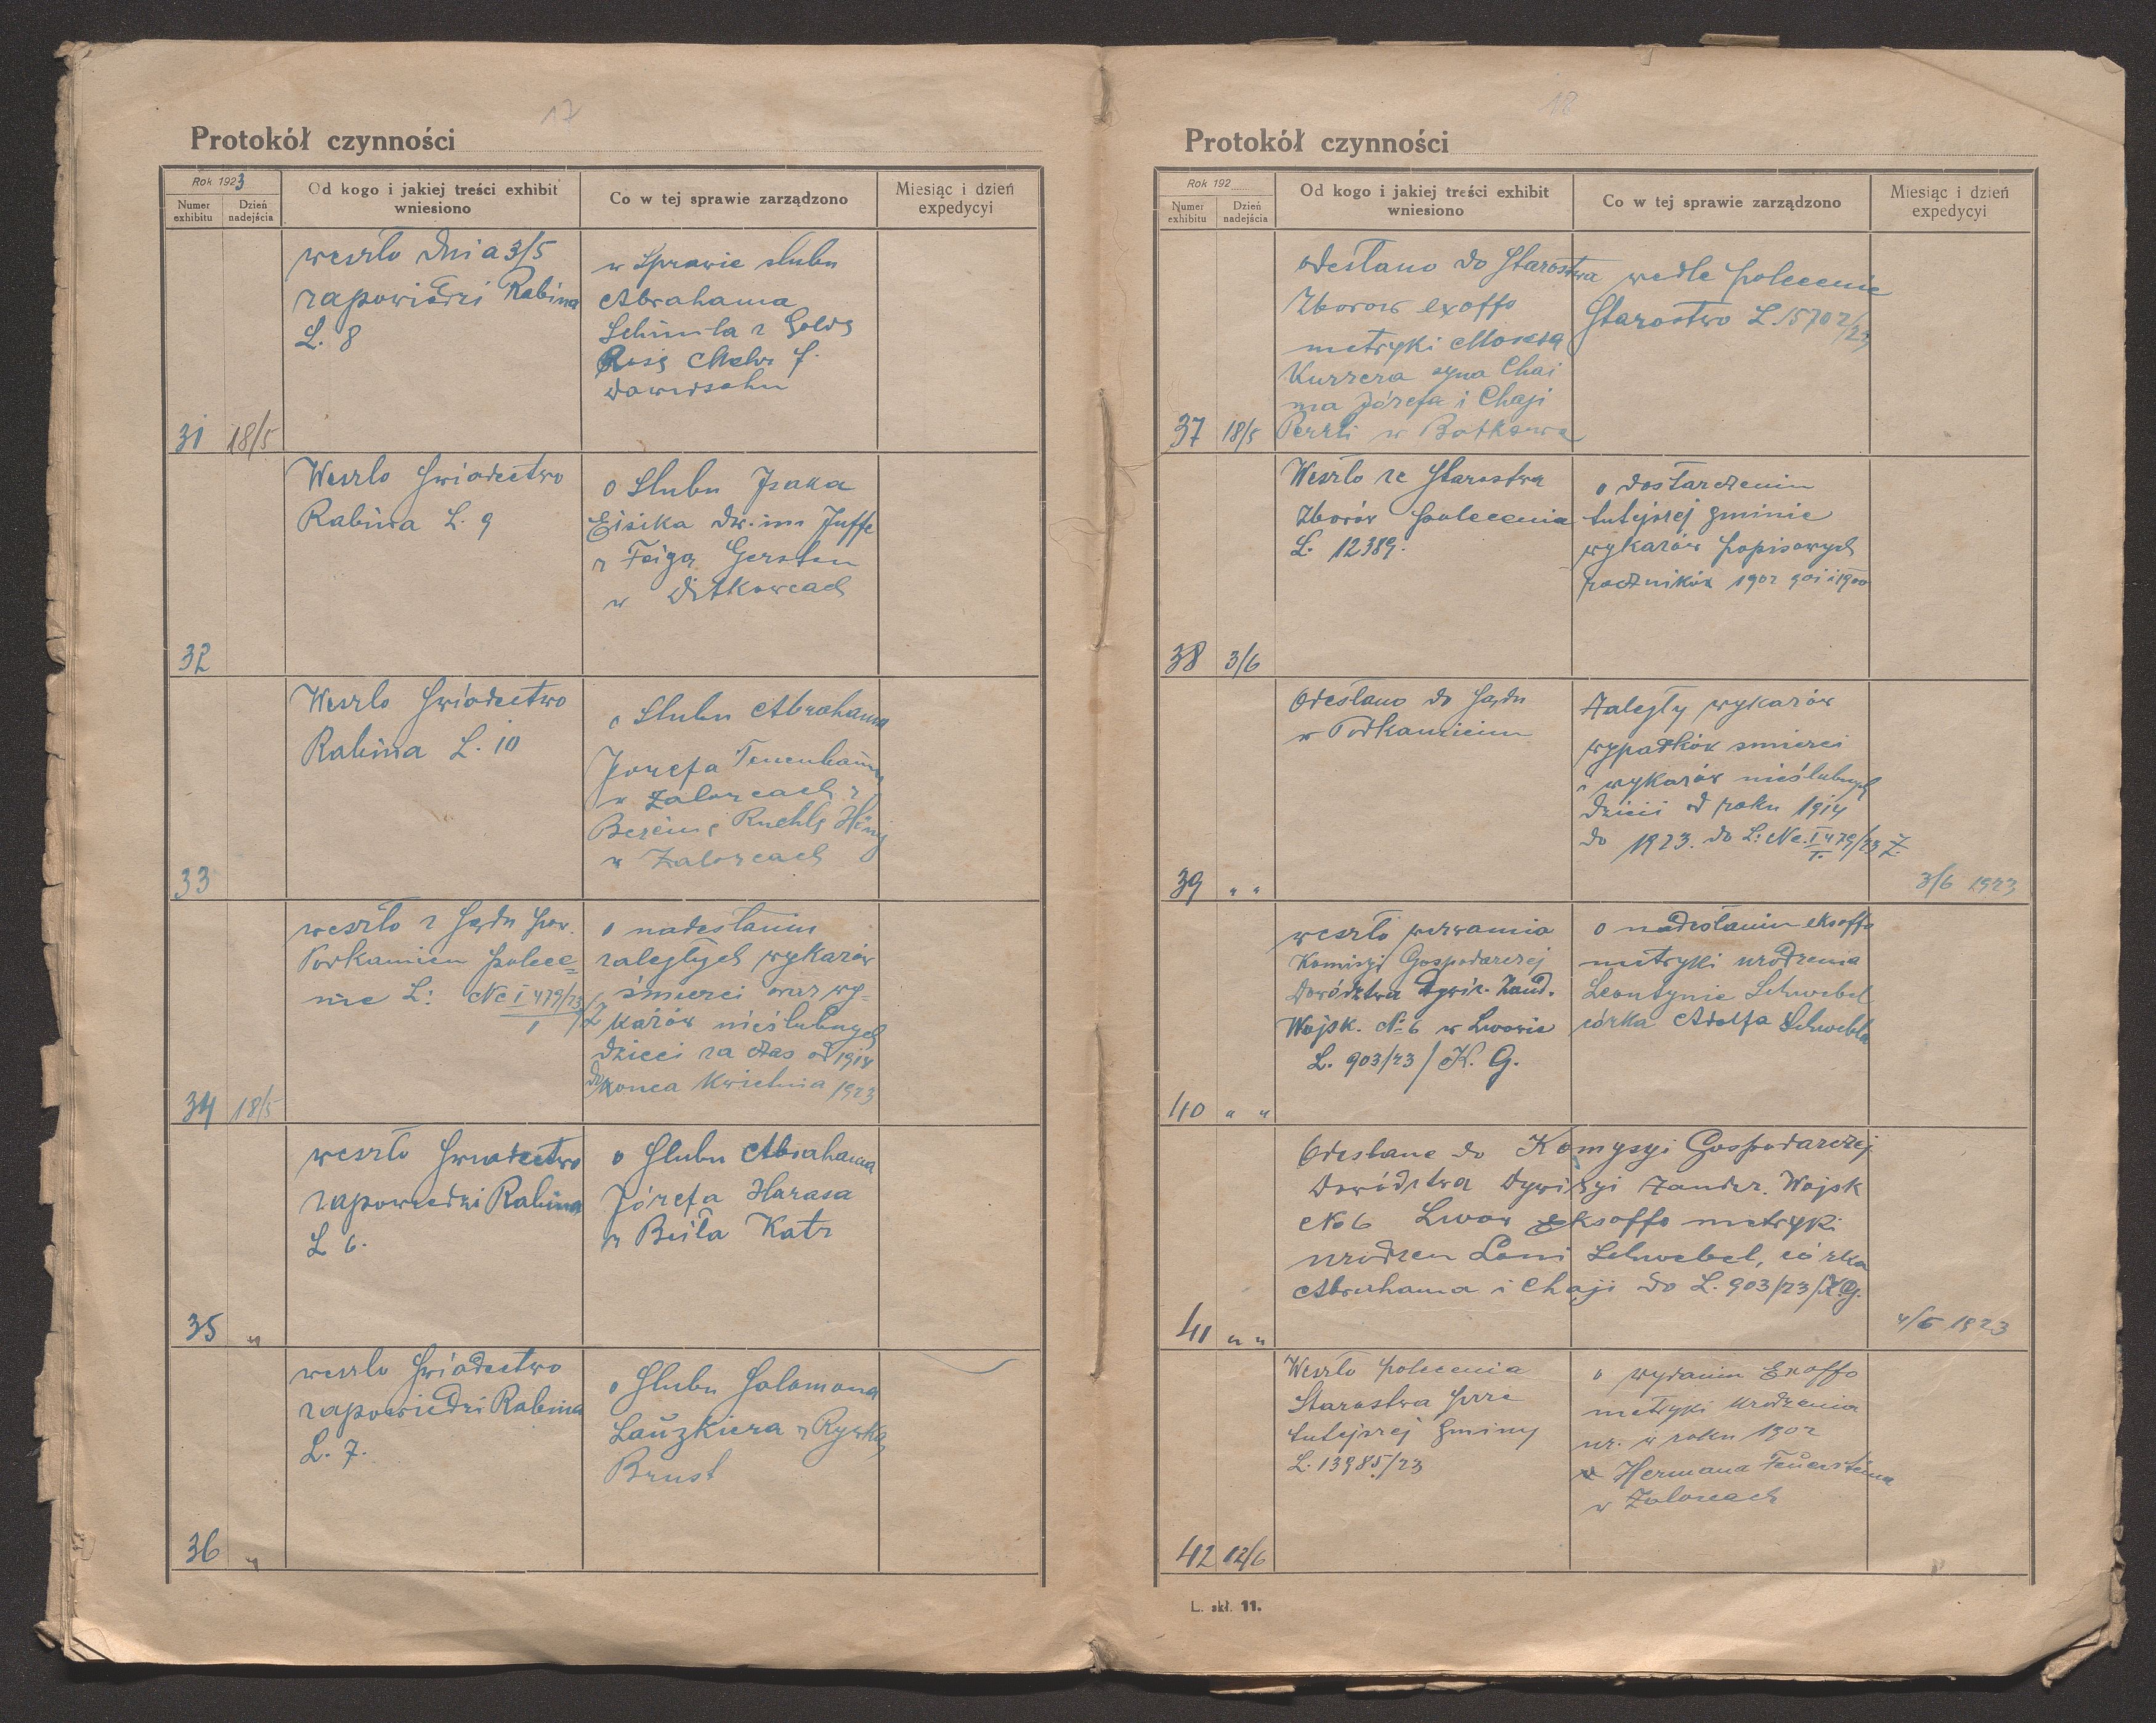 17
Protokół czynności
Rok 1923
Numer exhibitu
Dzień nadejścia
Od kogo i jakiej treści exhibit wniesiono
Co w tej sprawie zarządzono
Miesiąc i dzień expedycyi
31 18/5
weszło dnia 3/5
zapowiedzi Rabina
L. 8
w Sprawie slubu
Abrahama
z Golds
Rosą
32
Weszlo Swiadectwo
Rabina L. 9
o Slubu Isaka
Eisika dw. im Juffe
z Feigą Gersten
w Ditkowcach
33
Weszlo Swiadectwo
Rabina L. 10
o Slubu Abrahama
Jozefa Tenenbaum
w Zalozcach z
Ruchlą Hönig
w Zalozcach
34 18/5
weszło z Sądu pow.
Podkamien polece=
nie L: Nc I 479/23/Z
I
o nadesłaniu
zaległych wykazów
śmierci oraz wy=
kazów nieślubnych
dzieci za czas od 1914
do konca Kwietnia 1923
35 "
weszło Swiadectwo
zapowiedzi Rabina
L 6.
o Slubu Abrahama
Józefa Harasa
z Beila Katz
36 "
weszlo Swiadectwo
zapowiedzi Rabina
L. 7.
o Slubu Salomona
Lauzkiera z Rywką
Brust
12
Protokół czynności
Rok 192
Numer exhibitu
Dzień nadejścia
Od kogo i jakiej treści exhibit wniesiono
Co w tej sprawie zarządzono
Miesiąc i dzień expedycyi
37 18/5
odesłano do Starostwa
Zborow exoffo
metryki Mosesa
Kurzera syna Chai
ma Józefa i Chaji
Perzli w Batkowa
wedle polecenie
Starostwo L. 15702/23
38 3/6
Weszło ze Starostwa
Zborów polecenia
L. 12389.
o dostarczeniu
tutejszej gminie
wykazów popisowych
roczników 1902 901 i 1900
39 " "
Odesłano do Sądu
w Podkamieniu
Zaległy wykazów
wypadków smierci
i wykazów nieślubnych
dzieci od roku 1914
do 1923. do L: Nc. I 479/23 Z.
I.
3/6 1923
40 " "
weszło wezwania
Komisyi Gospodarczej
Dowództwa Dywiz. Żand.
Wojsk. No 6 w Lwowie
L. 903/23/K. G.
o nadesłaniu eksoffo
metryki urodzenia
Leontynie Schwebel
córka Adolfa Schwebla
41 " "
Odesłane do Komysyi Gospodarczej
Dowództwa Dywizyi Zandar. Wojsk
No 6 Lwow Eksoffo metryki
urodzen Loni Schwebel, córka
Abrahama i Chaji do L. 903/23/K.G.
4/6 1923
42 12/6
Weszło polecenia
Starostwa prze
tutejszej Gminy
L. 13985/23
o wydaniu Exoffo
metryki urodzenia
ur. w roku 1902
Hermana Feuersteina
w Zalozcach
L. skł. 11.